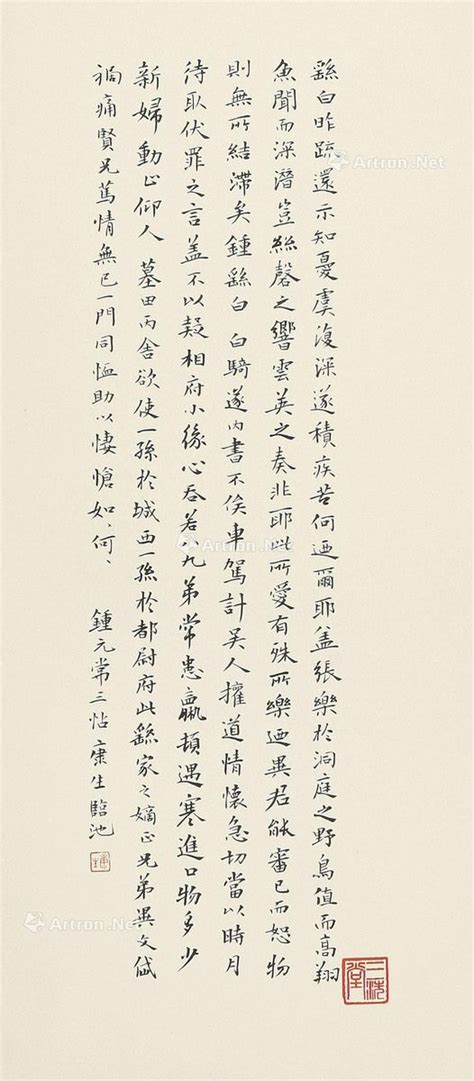 繇白昨疏還示知憂虞復深遂積疾苦何迺爾耶蓋張樂於洞庭之野鳥值而高翔
魚聞而深潛豈絲磬之響雲英之奏非耶此所愛有殊所樂迺異君能審己而恕物
則無所結滯矣鍾繇白 白騎遂內書不俟車駕計吳人權道情懷急切當以時月
待取伏罪之言蓋不以疑相府小緣心吞若八九弟常患羸頓遇寒進口物多少
新婦動止仰人 墓田丙舍欲使一孫於城西一孫於都尉府此繇家之嫡正兄弟異
禍痛賢兄篤情無已一門同恤助以悽愴如、何、
鍾元常三帖康生臨池
三洗堂
Artron.Net
Artron.Net
Artron.Net
Artron.Net